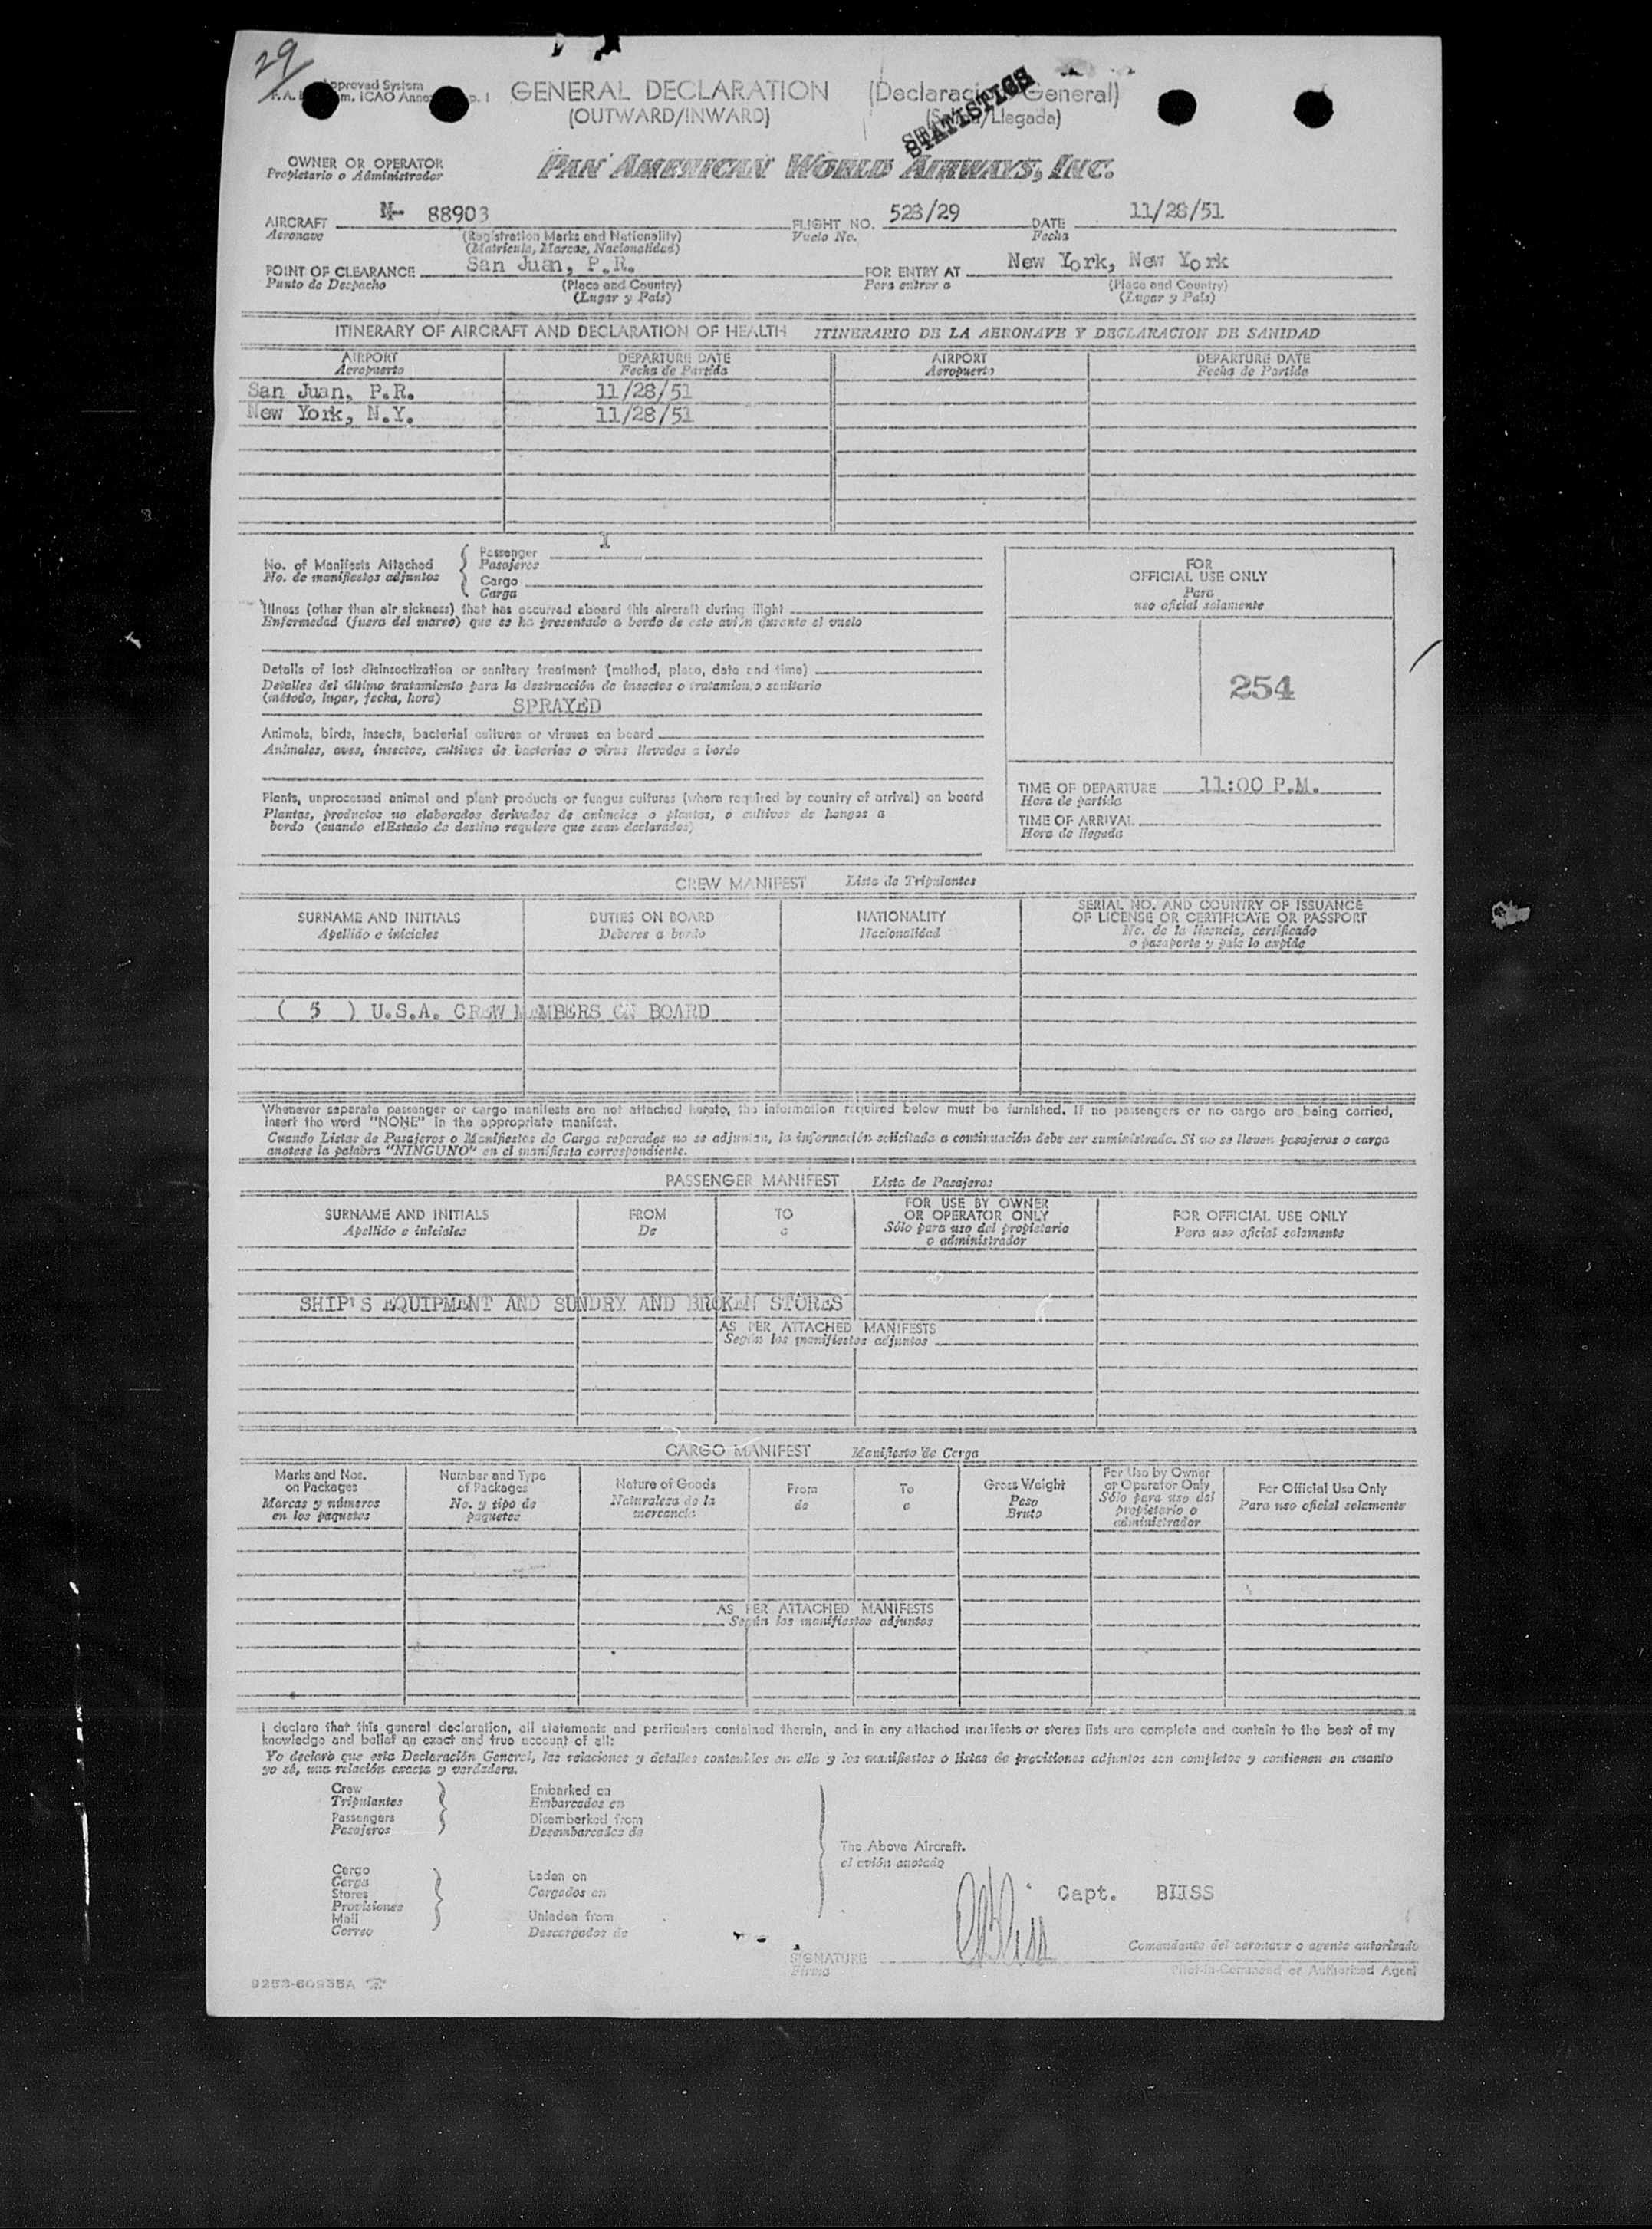 29
GENERAL DECLARATION (Declaración General)
(OUTWARD/INWARD) (Salida/Llegada)
STATISTICS
OWNER OR OPERATOR
Propietario o Administrador
PAN AMERICAN WORLD AIRWAYS, INC.
AIRCRAFT N- 88903 FLIGHT NO. 528/29 DATE 11/28/51
Aeronave (Registration Marks and Nationality) Vuelo No. Fecha
(Matricula, Marcas, Nacionalidad)
POINT OF CLEARANCE San Juan, P.R. FOR ENTRY AT New York, New York
Punto de Despacho (Place and Country) Para entrar a (Place and Country)
(Lugar y País) (Lugar y País)
ITINERARY OF AIRCRAFT AND DECLARATION OF HEALTH ITINERARIO DE LA AERONAVE Y DECLARACION DE SANIDAD
AIRPORT DEPARTURE DATE AIRPORT DEPARTURE DATE
Aeropuerto Fecha de Partida Aeropuerto Fecha de Partida
San Juan, P.R. 11/28/51
New York, N.Y. 11/28/51
No. of Manifests Attached
No. de manifiestos adjuntos
Passenger 1
Pasajeros
Cargo
Carga
Illness (other than air sickness) that has occurred aboard this aircraft during flight
Enfermedad (fuera del mareo) que se ha presentado a bordo de este avión durante el vuelo
Details of last disinsectization or sanitary treatment (method, place, date and time)
Detalles del último tratamiento para la destrucción de insectos o tratamiento sanitario
(método, lugar, fecha, hora) SPRAYED
Animals, birds, insects, bacterial cultures or viruses on board
Animales, aves, insectos, cultivos de bacterias o virus llevados a bordo
Plants, unprocessed animal and plant products or fungus cultures (where required by country of arrival) on board
Plantas, productos no elaborados derivados de animales o plantas, o cultivos de hongos a
bordo (cuando elEstado de destino requiere que sean declarados)
FOR
OFFICIAL USE ONLY
Para
uso oficial solamente
254
TIME OF DEPARTURE 11:00 P.M.
Hora de partida
TIME OF ARRIVAL
Hora de llegada
CREW MANIFEST Lista de Tripulantes
SURNAME AND INITIALS DUTIES ON BOARD NATIONALITY SERIAL NO. AND COUNTRY OF ISSUANCE
OF LICENSE OR CERTIFICATE OR PASSPORT
Apellido e iniciales Deberes a bordo Nacionalidad No. de la licencia, certificado
o pasaporte y país lo expide
( 5 ) U.S.A. CREW MEMBERS ON BOARD
Whenever separate passenger or cargo manifests are not attached hereto, the information required below must be furnished. If no passengers or no cargo are being carried,
insert the word "NONE" in the appropriate manifest.
Cuando Listas de Pasajeros o Manifiestos de Carga separados no se adjuntan, la información solicitada a continuación debe ser suministrada. Si no se lleven pasajeros o carga
anótese la palabra "NINGUNO" en el manifiesto correspondiente.
PASSENGER MANIFEST Lista de Pasajeros
SURNAME AND INITIALS FROM TO FOR USE BY OWNER
OR OPERATOR ONLY FOR OFFICIAL USE ONLY
Apellido e iniciales De a Sólo para uso del propietario
o administrador Para uso oficial solamente
SHIP'S EQUIPMENT AND SUNDRY AND BROKEN STORES
AS PER ATTACHED MANIFESTS
Según los manifiestos adjuntos
CARGO MANIFEST Manifiesto de Carga
Marks and Nos.
on Packages
Marcas y números
en los paquetes
Number and Type
of Packages
No. y tipo de
paquetes
Nature of Goods
Naturaleza de la
mercancía
From
de
To
a
Gross Weight
Peso
Bruto
For Use by Owner
or Operator Only
Sólo para uso del
propietario o
administrador
For Official Use Only
Para uso oficial solamente
AS PER ATTACHED MANIFESTS
Según los manifiestos adjuntos
I declare that this general declaration, all statements and particulars contained therein, and in any attached manifests or stores lists are complete and contain to the best of my
knowledge and belief an exact and true account of all:
Yo declaro que esta Declaración General, las relaciones y detalles contenidos en ella y los manifiestos o listas de provisiones adjuntos son completos y contienen en cuanto
yo sé, una relación exacta y verdadera.
Crew
Tripulantes
Passengers
Pasajeros
Embarked on
Embarcados en
Disembarked from
Desembarcados de
Cargo
Carga
Stores
Provisiones
Mail
Correo
Laden on
Cargados en
Unladen from
Descargados de
The Above Aircraft.
el avión anotado
Capt. BLISS
SIGNATURE
Firma
Comandante del aeronave o agente autorizado
Pilot-in-Command or Authorized Agent
9253-60935A